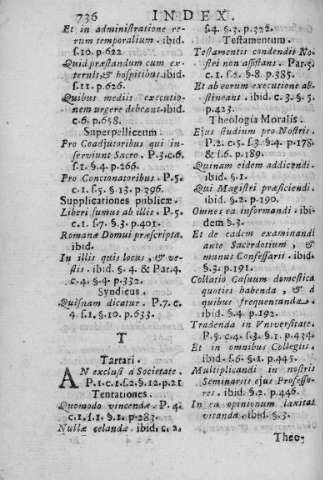 736 INDEX.
Et in administratione re-
rum temporalium. ibid.
ſ.10. p.622
Quid præstandum cum ex-
ternis, & hoſpitibus. ibid.
ſ.11. p.626.
Quibus mediis executio-
nem urgere debeant. ibid.
c.6. p.658.
Superpelliceum.
Pro Coadjutoribus qui in-
ſerviunt Sacro. P.3.c.6.
ſ.1. §.4. p.266.
Pro Concionatoribus. P.5.
c.1. ſ.5. §.13. p.396.
Supplicationes publicæ.
Liberi ſumus ab illis. P.5.
c.1. ſ.7. §.3. p.401.
Romanæ Domui præſcriptæ.
ibid.
In illis quis locus, & ve-
ſtis. ibid. §.4. & Par.4.
c.4. §.4. p.332.
Syndicus.
Quiſnam dicatur. P.7.c.
4. ſ.1. §.10. p.633.
T
Tartari.
AN excluſi a Societate.
P.1.c.1.ſ.2.§.12.p.21
Tentationes.
Quomodo vincendæ. P.4.
c.1.ſ.1. §.1. p.283.
Nullæ celandæ. ibid. c.2.
ſ.4. §.3. p.322.
Testamentum.
Testamentis condendis No-
ſtri non aſſiſtant. Par.5.
c.1. ſ.2. §.8. p.385.
Et ab eorum executione ab-
ſtineant. ibid. c.3. §.5.
p.423.
Theologia Moralis.
Ejus ſtudium pro Noſtris.
P.2. c.5. ſ.3. §.4. p.178.
& ſ.6. p.189.
Quinam eidem addicendi.
ibid. §.1.
Qui Magiſtri præficiendi.
ibid. §.2. p.190.
Omnes ea informandi. ibi-
dem §.3.
Et de eadem examinandi
ante Sacerdotium, &
munus Confeſſarii. ibid.
§.3. p.191.
Collatio Caſuum domeſtica
quoties habenda, & à
quibus frequentanda.
ibid. §.4. p.192.
Tradenda in Univerſitate.
P.5. c.4. ſ.3. §.1. p.434.
Et in omnibus Collegiis.
ibid. ſ.6. §.1. p.445.
Multiplicandi in noſtris
Seminariis ejus Profeſſo-
res. ibid. §.2. p.446.
In ea opinionum laxitas
vitanda. ibid. §.3.
Theo-